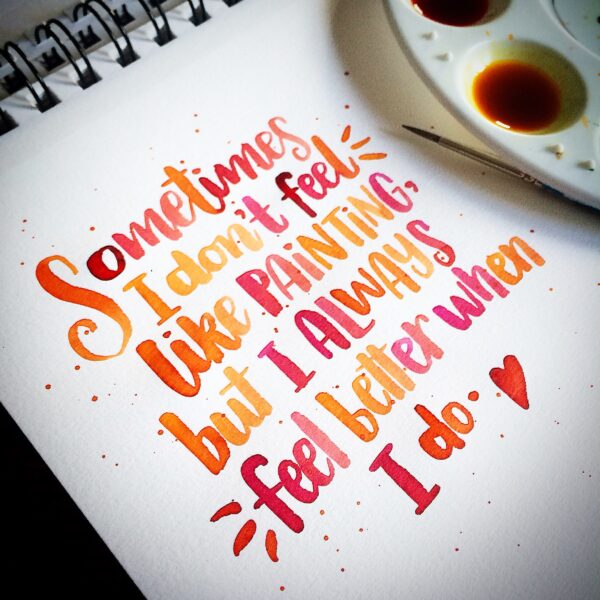 Sometimes
I don't feel
like PAiNTiNG,
but I ALWAYS
feel better when
I do.